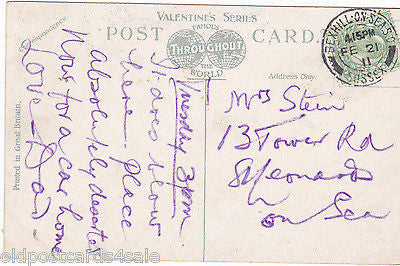 VALENTINE'S SERIES
FAMOUS
POST CARD.
THROUGHOUT
THE WORLD
Correspondence.
Address Only.
Printed in Great Britain.
BEXHILL-ON-SEA
4.15PM
FE 21
11
SUSSEX
Tuesday 3pm
It does blow
here - Place
absolutely deserted
Now for a car home
Love - Dad -
Mrs Stein
13 Tower Rd
St Leonards
on Sea
oldpostcards4sale